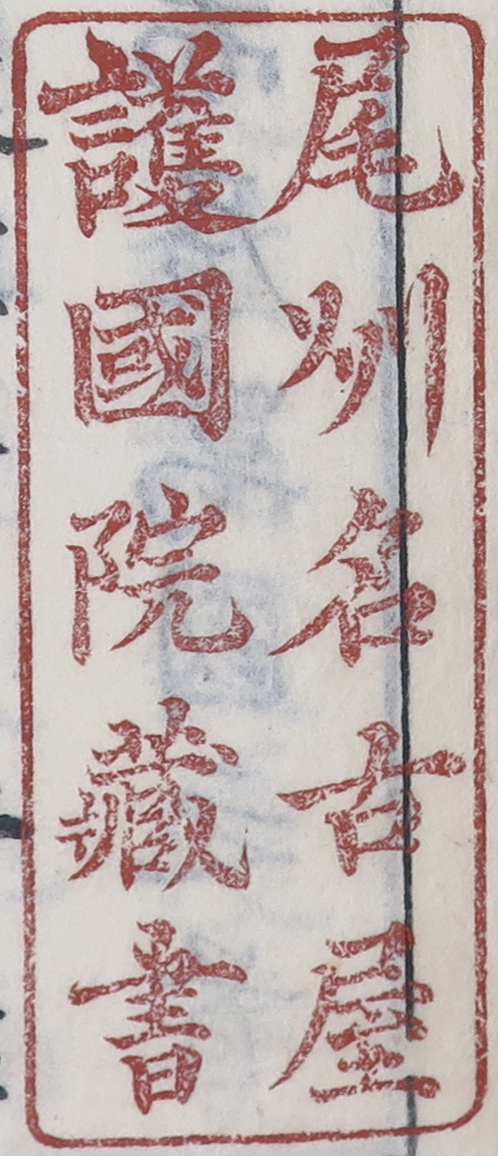 尾州名古屋
護國院藏書